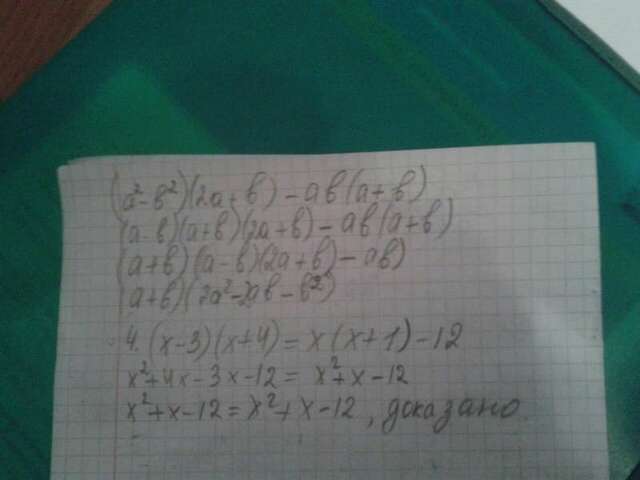 (a²-b²)(2a+b)-ab(a+b)
(a-b)(a+b)(2a+b)-ab(a+b)
(a+b)(a-b)(2a+b)-ab)
(a+b)(2a²-2ab-b²)
4. (x-3)(x+4)=x(x+1)-12
x²+4x-3x-12=x²+x-12
x²+x-12=x²+x-12, доказано.